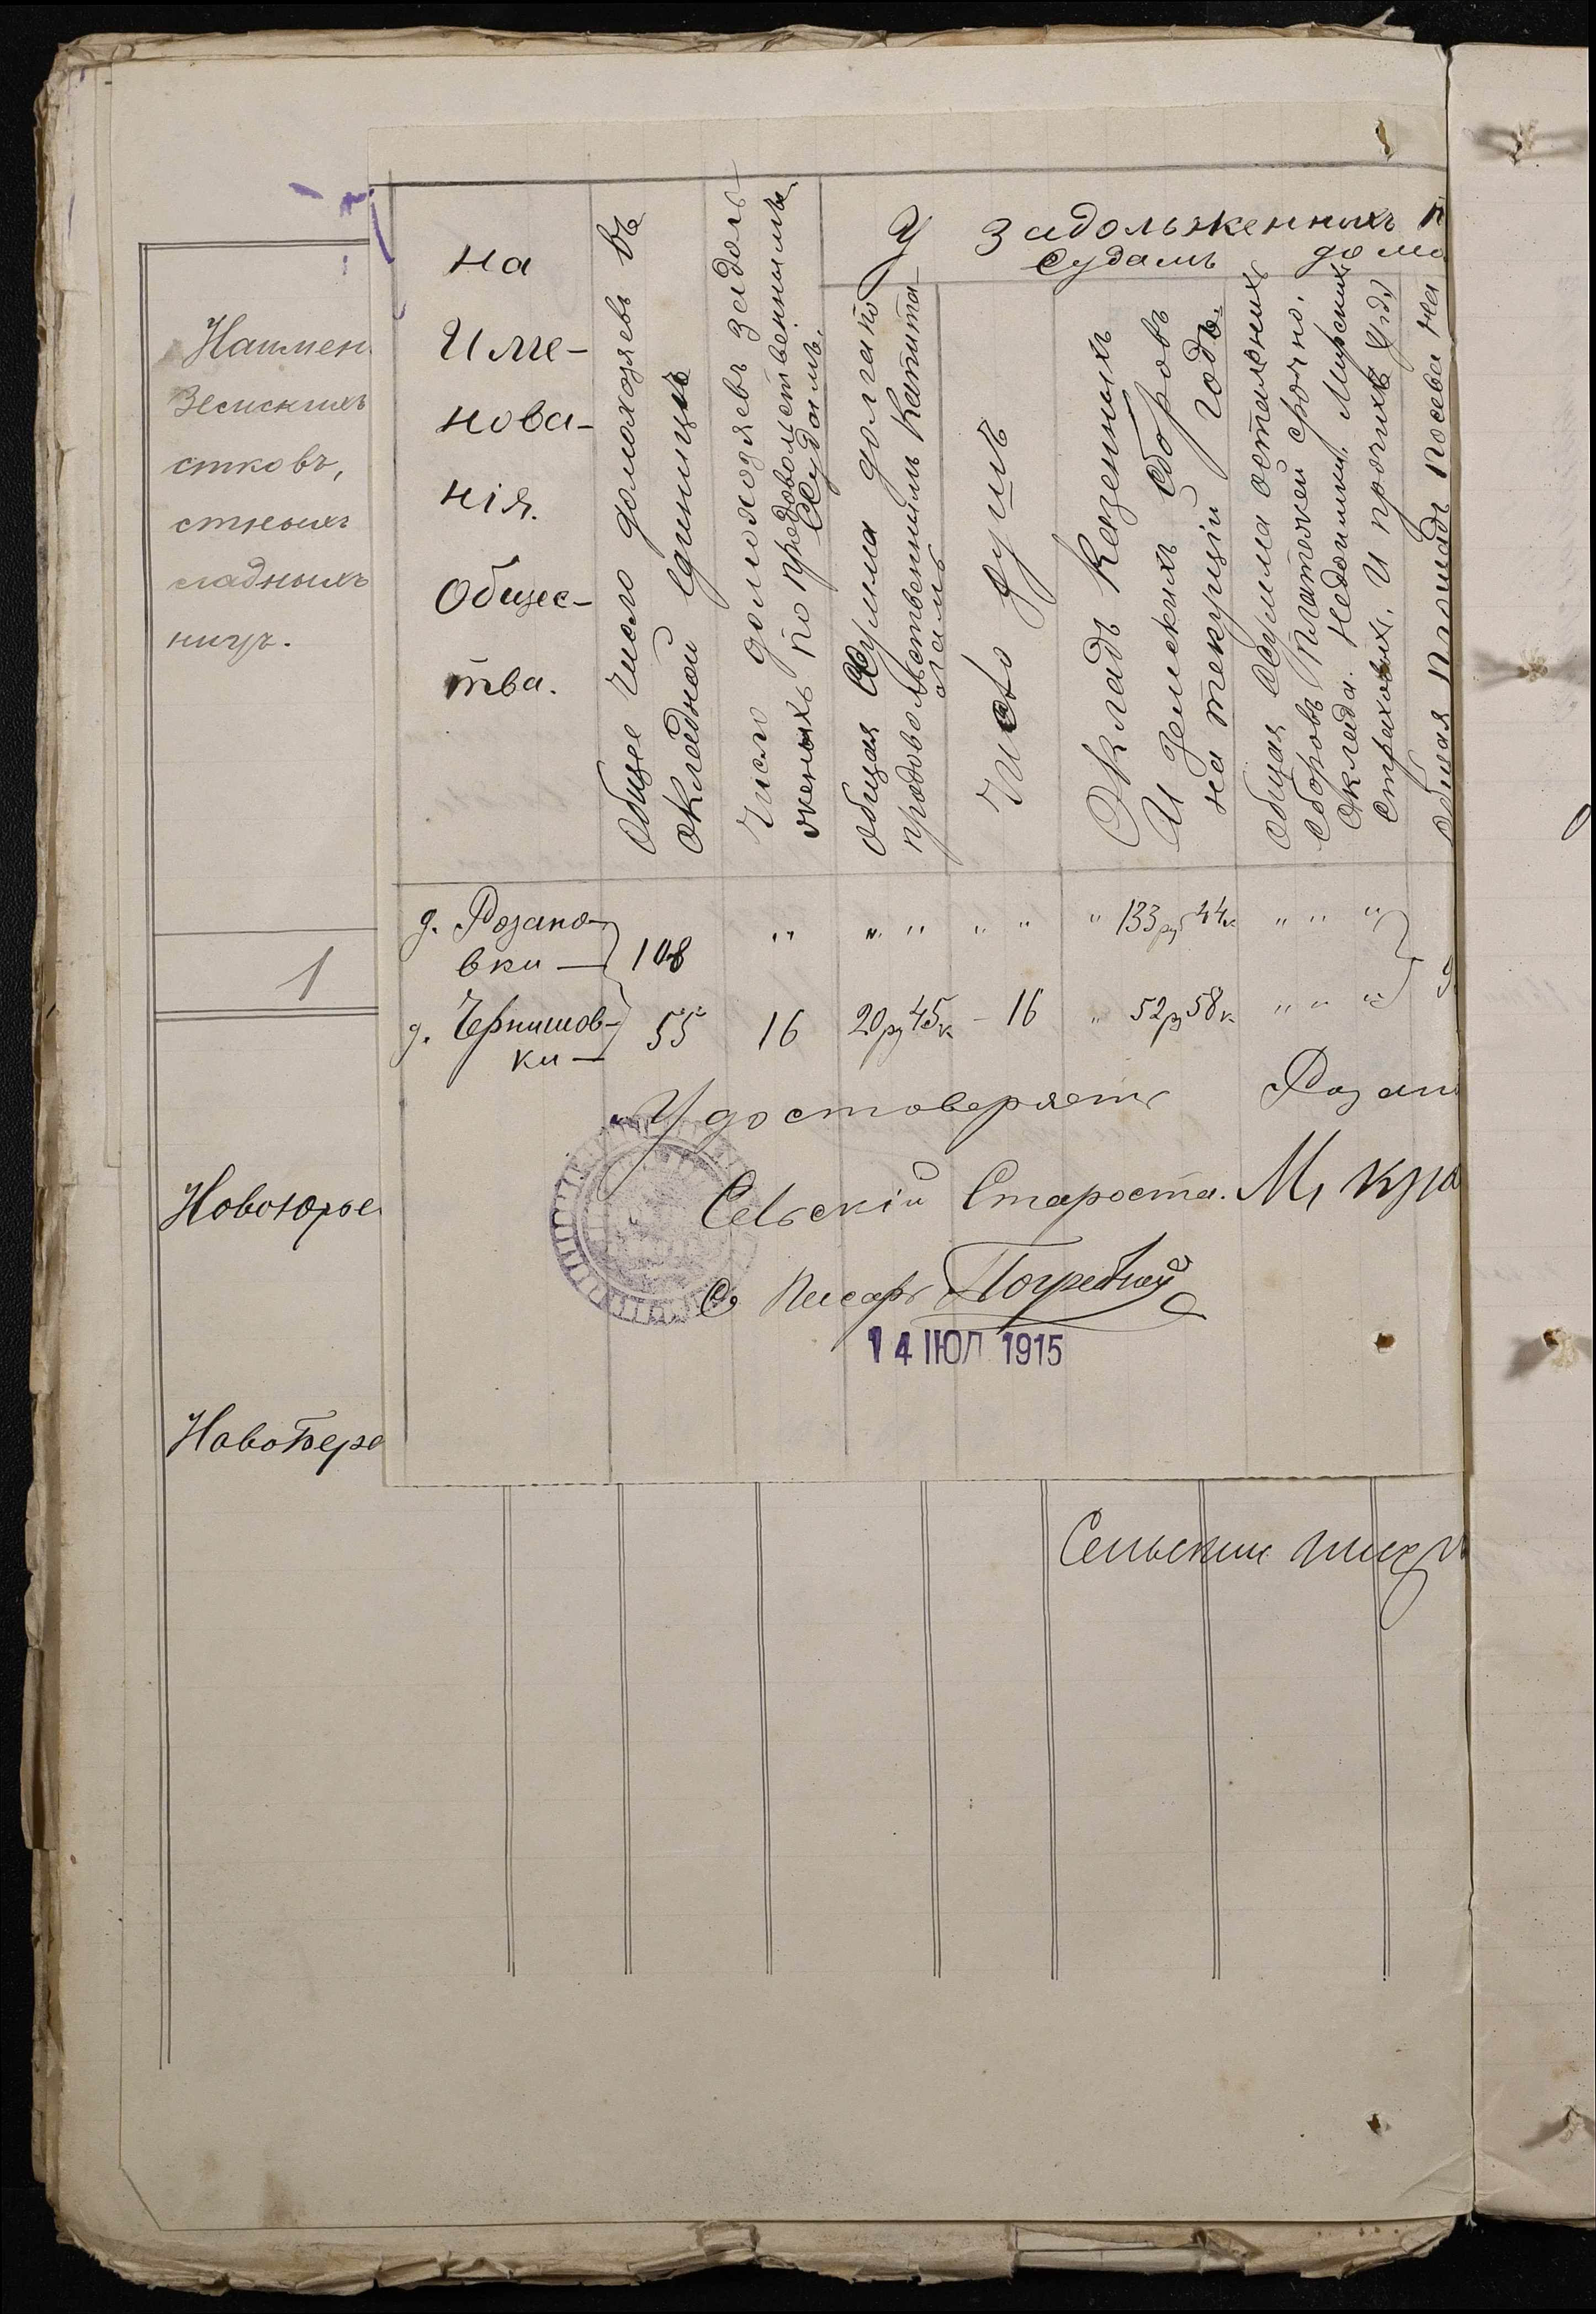 Наимен
Земскихъ
стковъ,
стныхъ
кладныхъ
ницъ.
1
Новоюрье
НовоБере
На
Име-
нова-
нія.
Общес-
тва.
Общее число домохозяевъ въ
окладной единицѣ
Число домохозяевъ задоль-
женыхъ по продовольственнымъ
Ссудамъ.
У задолженныхъ п
Судамъ домо
Общая Сумма долга по
продовольственнымъ Капита-
ламъ
Число душъ
Окладъ Казенныхъ
И Земскихъ Сборовъ
на текущій годъ.
Общая Сумма остальныхъ
сборовъ Платежей Срочно.
Оклада. Недоимки, Мирскихъ
страховых. И прочихъ
Общая площадь посева на
д. Розано-
вки — 108 " " " " " " 133 ру 44 к " " "
д. Чернишов-
ки — 55 16 20 ру 45 к – 16 " 52 ру 58 к " " "
Удостоверяетъ Розан
Сельскій Староста. М, Кра
С. Писарь Погребной
14 ІЮЛ 1915
Сельскій писар